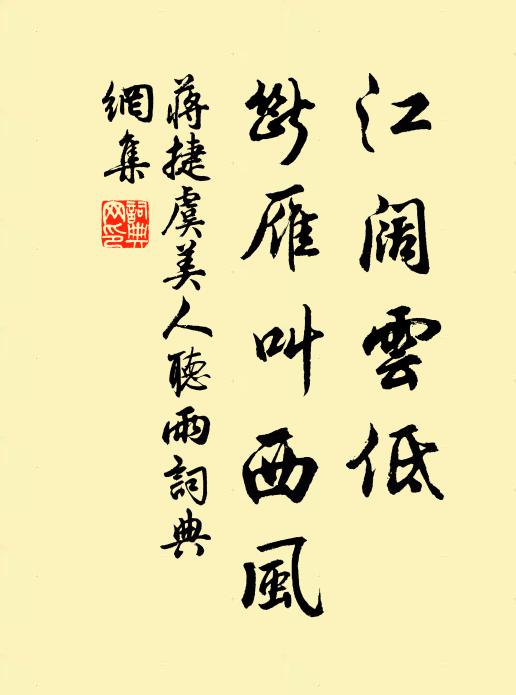 江闊雲低
斷雁叫西風
蔣捷虞美人聽雨詞典
網集
詞典
网印